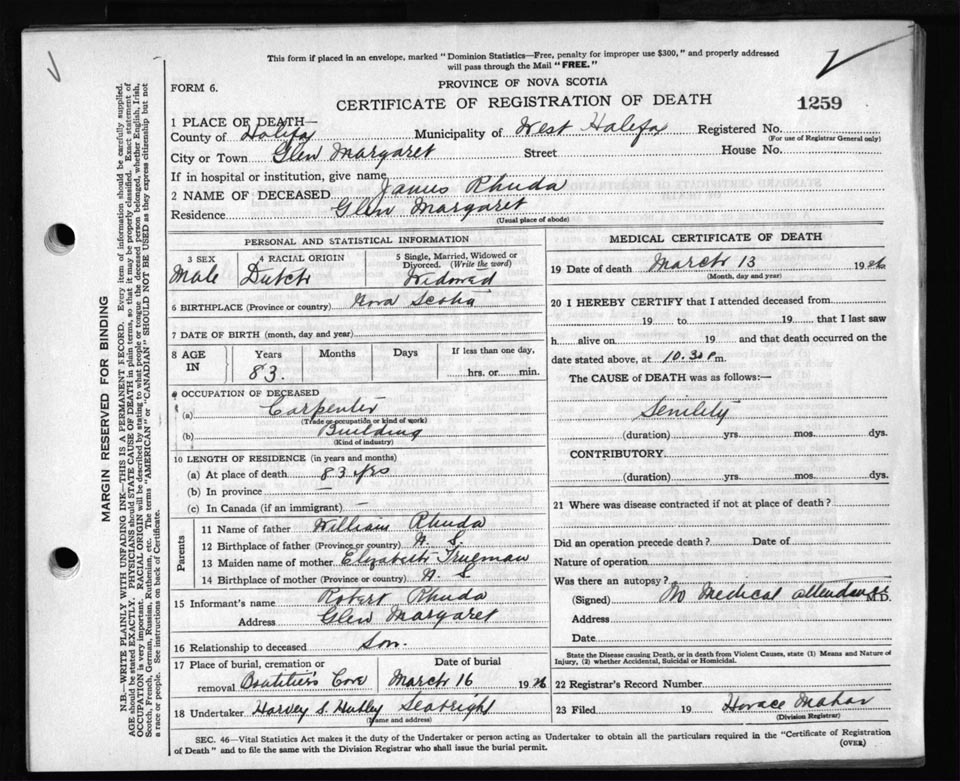 This form if placed in an envelope, marked "Dominion Statistics—Free, penalty for improper use $300," and properly addressed
will pass through the Mail "FREE."
FORM 6.
PROVINCE OF NOVA SCOTIA
CERTIFICATE OF REGISTRATION OF DEATH
1259
1 PLACE OF DEATH—
County of Halifax Municipality of West Halifax Registered No.
(For use of Registrar General only)
City or Town Glen Margaret Street House No.
If in hospital or institution, give name
2 NAME OF DECEASED James Rhuda
Residence Glen Margaret
(Usual place of abode)
PERSONAL AND STATISTICAL INFORMATION
3 SEX 4 RACIAL ORIGIN 5 Single, Married, Widowed or
Divorced. (Write the word)
Male Dutch Widowed
6 BIRTHPLACE (Province or country) Nova Scotia
7 DATE OF BIRTH (month, day and year)
8 AGE IN Years Months Days If less than one day,
83. hrs. or min.
9 OCCUPATION OF DECEASED
(a) Carpenter
(Trade or occupation or kind of work)
(b) Building
(Kind of industry)
10 LENGTH OF RESIDENCE (in years and months)
(a) At place of death 83 yrs
(b) In province —
(c) In Canada (if an immigrant) —
Parents
11 Name of father William Rhuda
12 Birthplace of father (Province or country) N. S.
13 Maiden name of mother Elizabeth Trueman
14 Birthplace of mother (Province or country) N. S.
15 Informant's name Robert Rhuda
Address Glen Margaret
16 Relationship to deceased Son.
17 Place of burial, cremation or Date of burial
removal Boutilier's Cove March 16 1926
18 Undertaker Harvey S. Hubley Seabright
(Name and address)
MEDICAL CERTIFICATE OF DEATH
19 Date of death March 13 1926
(Month, day and year)
20 I HEREBY CERTIFY that I attended deceased from
19 to 19 that I last saw
h alive on 19 and that death occurred on the
date stated above, at 10.30 P m.
The CAUSE of DEATH was as follows:—
Senility
(duration) yrs. mos. dys.
CONTRIBUTORY
(duration) yrs. mos. dys.
21 Where was disease contracted if not at place of death?
Did an operation precede death? Date of
Nature of operation
Was there an autopsy?
(Signed) No Medical attendance M.D.
Address
Date
State the Disease causing Death, or in death from Violent Causes, state (1) Means and Nature of
Injury, (2) whether Accidental, Suicidal or Homicidal.
22 Registrar's Record Number
23 Filed 19 Horace Mahar
(Division Registrar)
SEC. 46—Vital Statistics Act makes it the duty of the Undertaker or person acting as Undertaker to obtain all the particulars required in the "Certificate of Registration
of Death" and to file the same with the Division Registrar who shall issue the burial permit. (OVER)
MARGIN RESERVED FOR BINDING
N.B.—WRITE PLAINLY WITH UNFADING INK—THIS IS A PERMANENT RECORD. Every item of information should be carefully supplied.
AGE should be stated EXACTLY. PHYSICIANS should STATE CAUSE OF DEATH in plain terms, so that it may be properly classified. Exact statement of
OCCUPATION is very important. RACIAL ORIGIN will be described by stating to what people or tongue the deceased person belonged, whether English, Irish,
Scotch, French, German, Russian, Ruthenian, etc. The terms "AMERICAN" or "CANADIAN" SHOULD NOT BE USED as they express citizenship but not
a race or people. See instructions on back of Certificate.